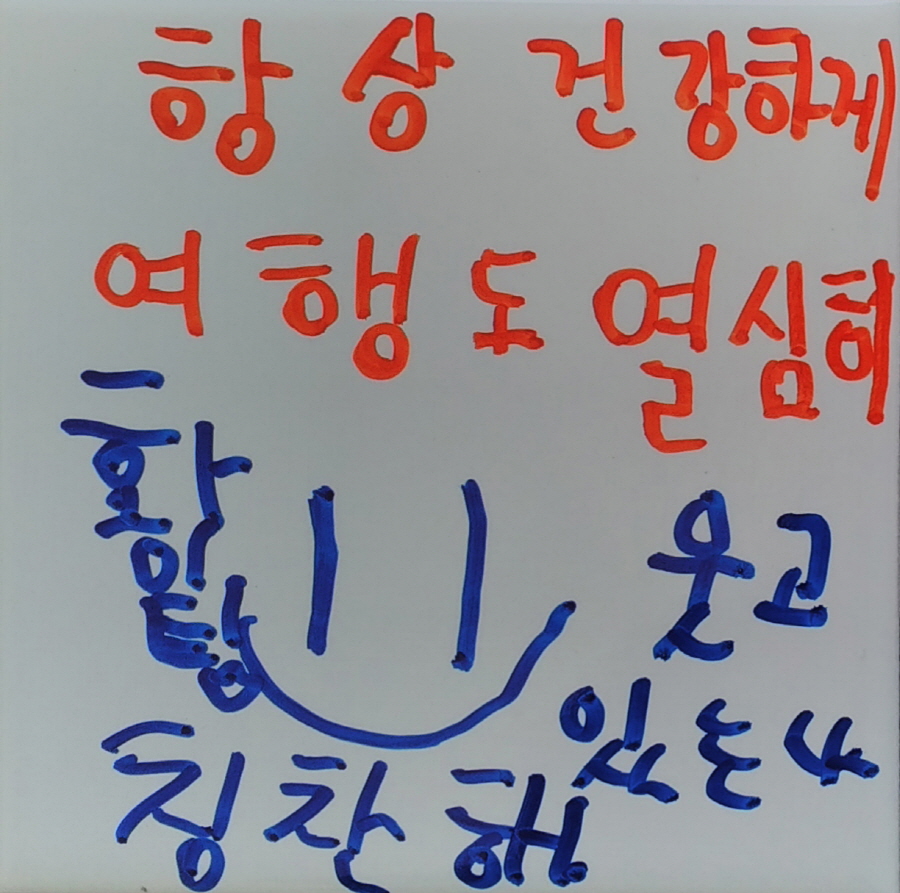 항상 건강하게
여행도 열심히
화이팅
웃고
있는 나
칭찬해